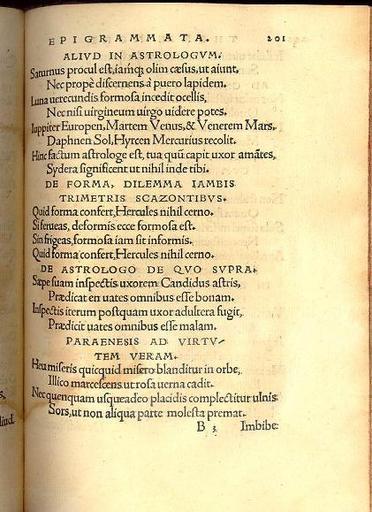 EPIGRAMMATA. 201
ALIVD IN ASTROLOGVM.
Saturnus procul est, iamq; olim cæsus, ut aiunt,
Nec prope discernens à puero lapidem.
Luna uerecundis formosa incedit ocellis,
Nec nisi uirgineum uirgo uidere potes.
Iuppiter Europen, Martem Venus, & Venerem Mars,
Daphnen Sol, Hyrcen Mercurius recolit.
Hinc factum astrologe est, tua quū capit uxor amātes,
Sydera significent ut nihil inde tibi.
DE FORMA, DILEMMA IAMBIS
TRIMETRIS SCAZONTIBVS.
Quid forma confert, Hercules nihil cerno.
Si ferueas, deformis ecce formosa est.
Sin frigeas, formosa iam sit informis.
Quid forma confert, Hercules nihil cerno.
DE ASTROLOGO DE QVO SVPRA.
Sæpe suam inspectis uxorem Candidus astris,
Prædicat en uates omnibus esse bonam.
Inspectis iterum postquam uxor adultera fugit,
Prædicit uates omnibus esse malam.
PARAENESIS AD VIRTV-
TEM VERAM.
Heu miseris quicquid misero blanditur in orbe,
Illico marcescens ut rosa uerna cadit.
Nec quenquam usqueadeo placidis complectitur ulnis
Sors, ut non aliqua parte molesta premat.
B 3 Imbibe